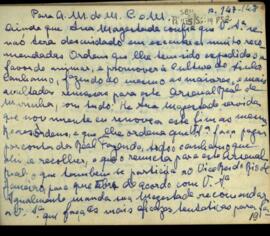 Para A. M. de M. C. e M.
Ainda que Sua Magestade confia que V. Sª.
não terá descuidado em executar muito reco-
mendadas Ordens que lhe tem sido expedidas a
favor de animar e promover a cultura do linho
canhamo, fazendo o mesmo as maiores, e mais
avultadas remessas para este Arsenal Real da
Marinha, com tudo. He Sua Magestade servida
que novamente eu renove a este fim as mesmas
Reaes ordens, e que lhe ordena que V. Sª. faça pagar
por conta da Real Fazenda, todo o canhamo que
ahi se recolher, e que o remeta para este Arsenal
Real, o que tambem se participa ao Vice Rey do Rio de
Janeiro para que obre de acordo com V. Sª.
Igualmente manda Sua Magestade recomendar
a V. Sª. que faça as mais eficazes tentativas para